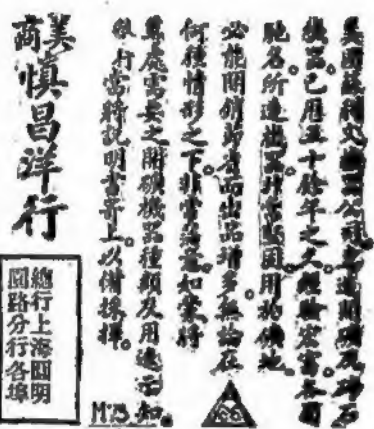 美國蘇利文機器公司專造開礦及碎石
機器已歷五十餘年之久經驗宏富各國
馳名所造機器非常堅固用於礦地
必能開銷節省而出品增多無論在
何種情形之下非常適宜如蒙將
貴處需要之開礦機器種類及用途示知
敝行當將説明書寄上以備採擇
美商
慎昌洋行
總行上海圓明
園路分行各埠
M-3